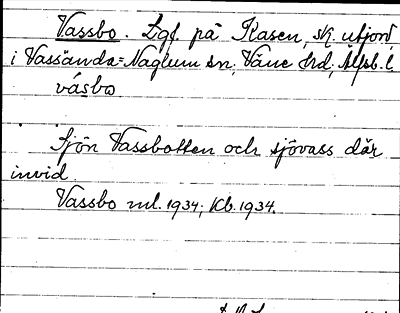 Vassbo. Lgf. på Kasen, sk. utjord
i Vassända=Naglum sn; Väne hd, Älfsb. l.
våsbo
Sjön Vassbotten och sjövass där
invid.
Vassbo ml. 1934; Kb. 1934.